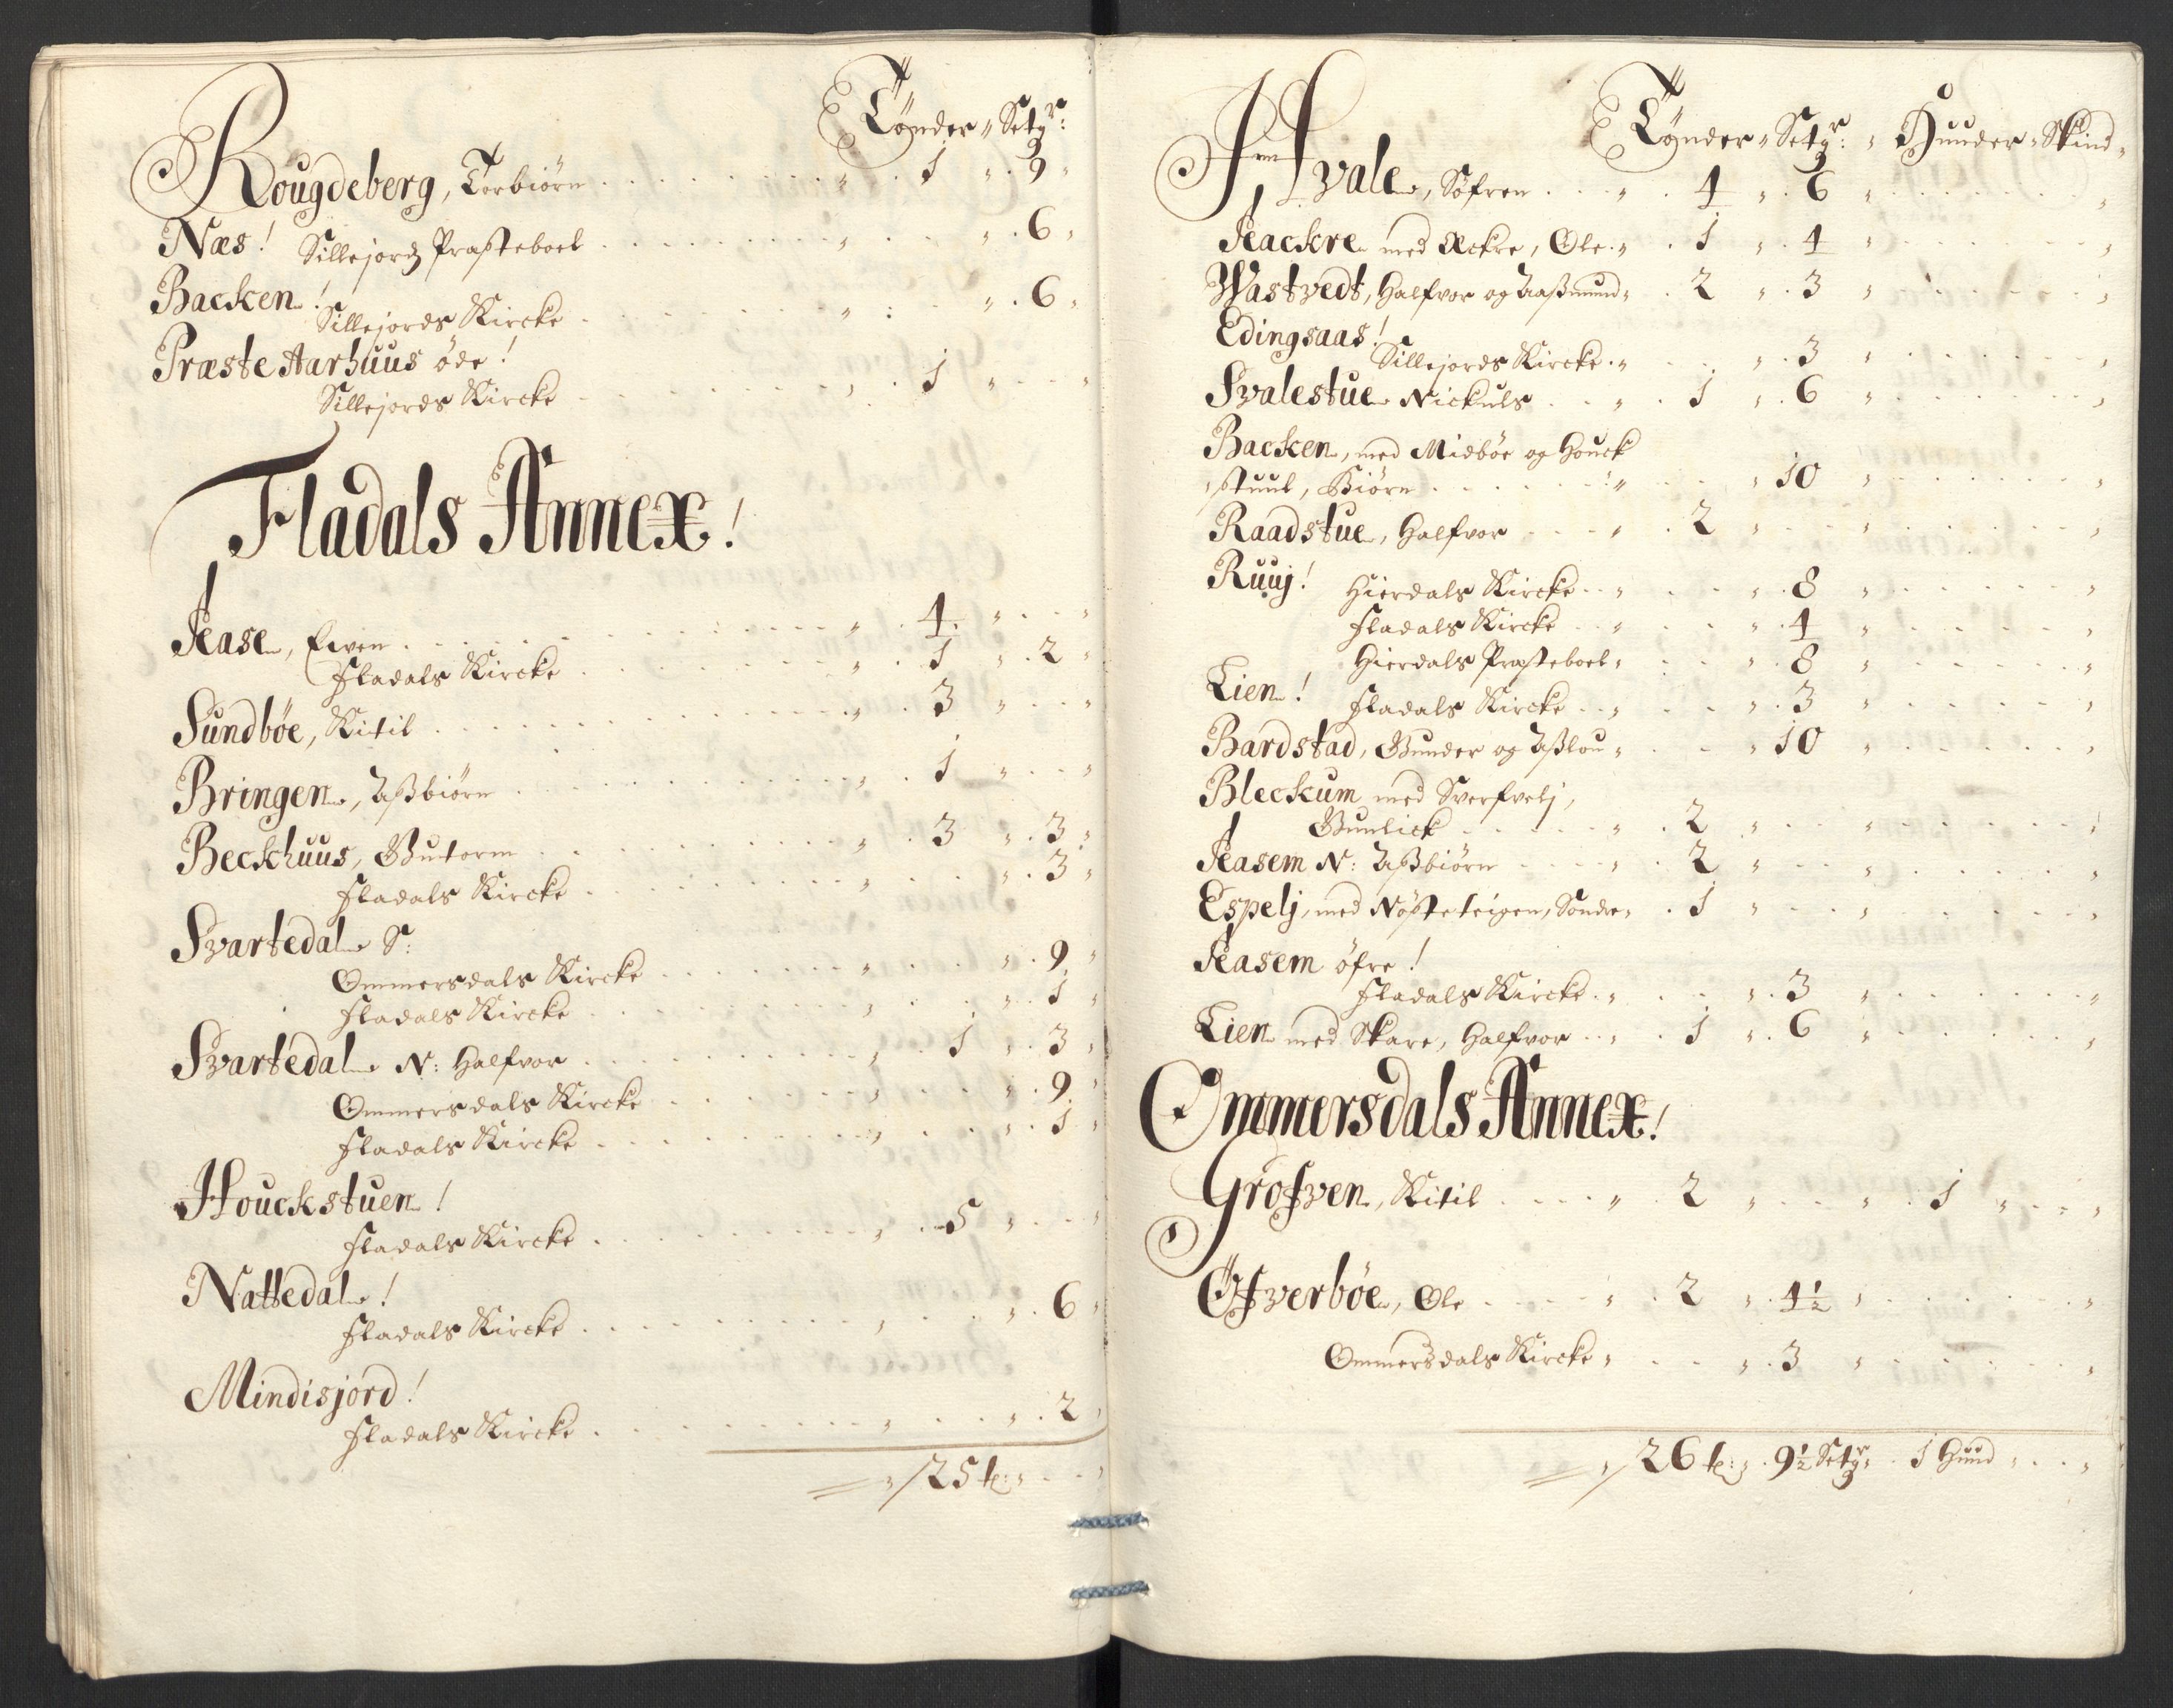 Tønder " Setgr:
Rougdeberg, Torbiørn . . . " . 1 " . 9 "
Næs! Sillejordz Præsteboel . . . " . . . " . 6 "
Backen!
Sillejords Kircke . . . " . . . " . 6 "
Præste Aarhuus öde!
Sillejords Kircke . . . " . 1 " . . . "
Fladals Annex!
Aase, Even . . . " . 4 " . . . "
Fladals Kircke . . . " . 1 " . 2 "
Sundböe, Kitil . . . " . 3 " . . . "
Bringen, Aßbiörn . . . " . 1 " . . . "
Beckhuus, Gutorm . . . " . 3 " . 3 "
Fladals Kircke . . . " . . . " . 3 "
Svartedal S:
Ommersdals Kircke . . . " . . . " . 9 "
Fladals Kircke . . . " . . . " . 1 "
Svartedal N: Halfvor . . . " . 1 " . 3 "
Ommersdals Kircke . . . " . . . " . 9 "
Fladals Kircke . . . " . . . " . 1 "
Houckstuen!
Fladals Kircke . . . " . 5 " . . . "
Nattedal!
Fladals Kircke . . . " . . . " . 6 "
Mindisjord!
Fladals Kircke . . . " . . . " . 2 "
" 25 t: " . . . "
Tønder " Setgr: " Huuder " Skind "
Hvale, Söfren . . . " . 4 " . 6 " . . . "
Aackre med Ackre, Ole . " . 1 " . 4 " . . . "
Wastvedt, Halfvor og Aaßmund " . 2 " . 3 " . . . "
Edingsaas!
Sillejords Kircke . " . . . " . 3 " . . . "
Svalestue Nickuls . . . " . 1 " . 6 " . . . "
Backen, med Midböe og Houck
stuul, Biörn . . . " . . . " 10 " . . . "
Raadstue, Halfvor . . . " . 2 " . . . " . . . "
Ruuj! Hierdals Kircke . . " . . . " . 8 " . . . "
Fladals Kircke . . " . . . " . 4 " . . . "
Hierdals Præsteboel " . . . " . 8 " . . . "
Lien! Fladals Kircke . . " . . . " . 3 " . . . "
Bardstad, Gunder og Aßlou " . . . " 10 " . . . "
Bleckum med Sverfvelj,
Gunlick . . . " . 2 " . . . " . . . "
Aasem N: Aßbiörn . . . " . 2 " . . . " . . . "
Espelj, med Nöste teigen, Sondre " . 1 " . . . " . . . "
Aasem öfre!
Fladals Kircke . " . . . " . 3 " . . . "
Lien med Skare, Halfvor . . " . 1 " . 6 " . . . "
Ommersdals Annex!
Grofven, Kitil . . . " . 2 " . . . " . 1 " . . "
Öfverböe, Ole . . . " . 2 " . 4½ " . . . "
Ommersdals Kircke " . . . " . 3 " . . . "
" 26 t: " . 9½ Setgr " . 1 Huud " . . "